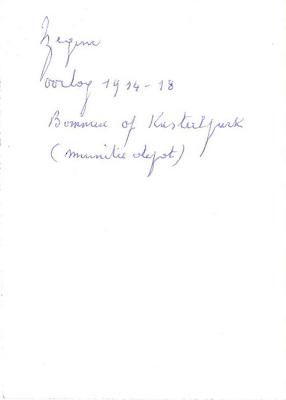 oorlog 1914-18
Bommen of Kasteelpark
(munitie depot)